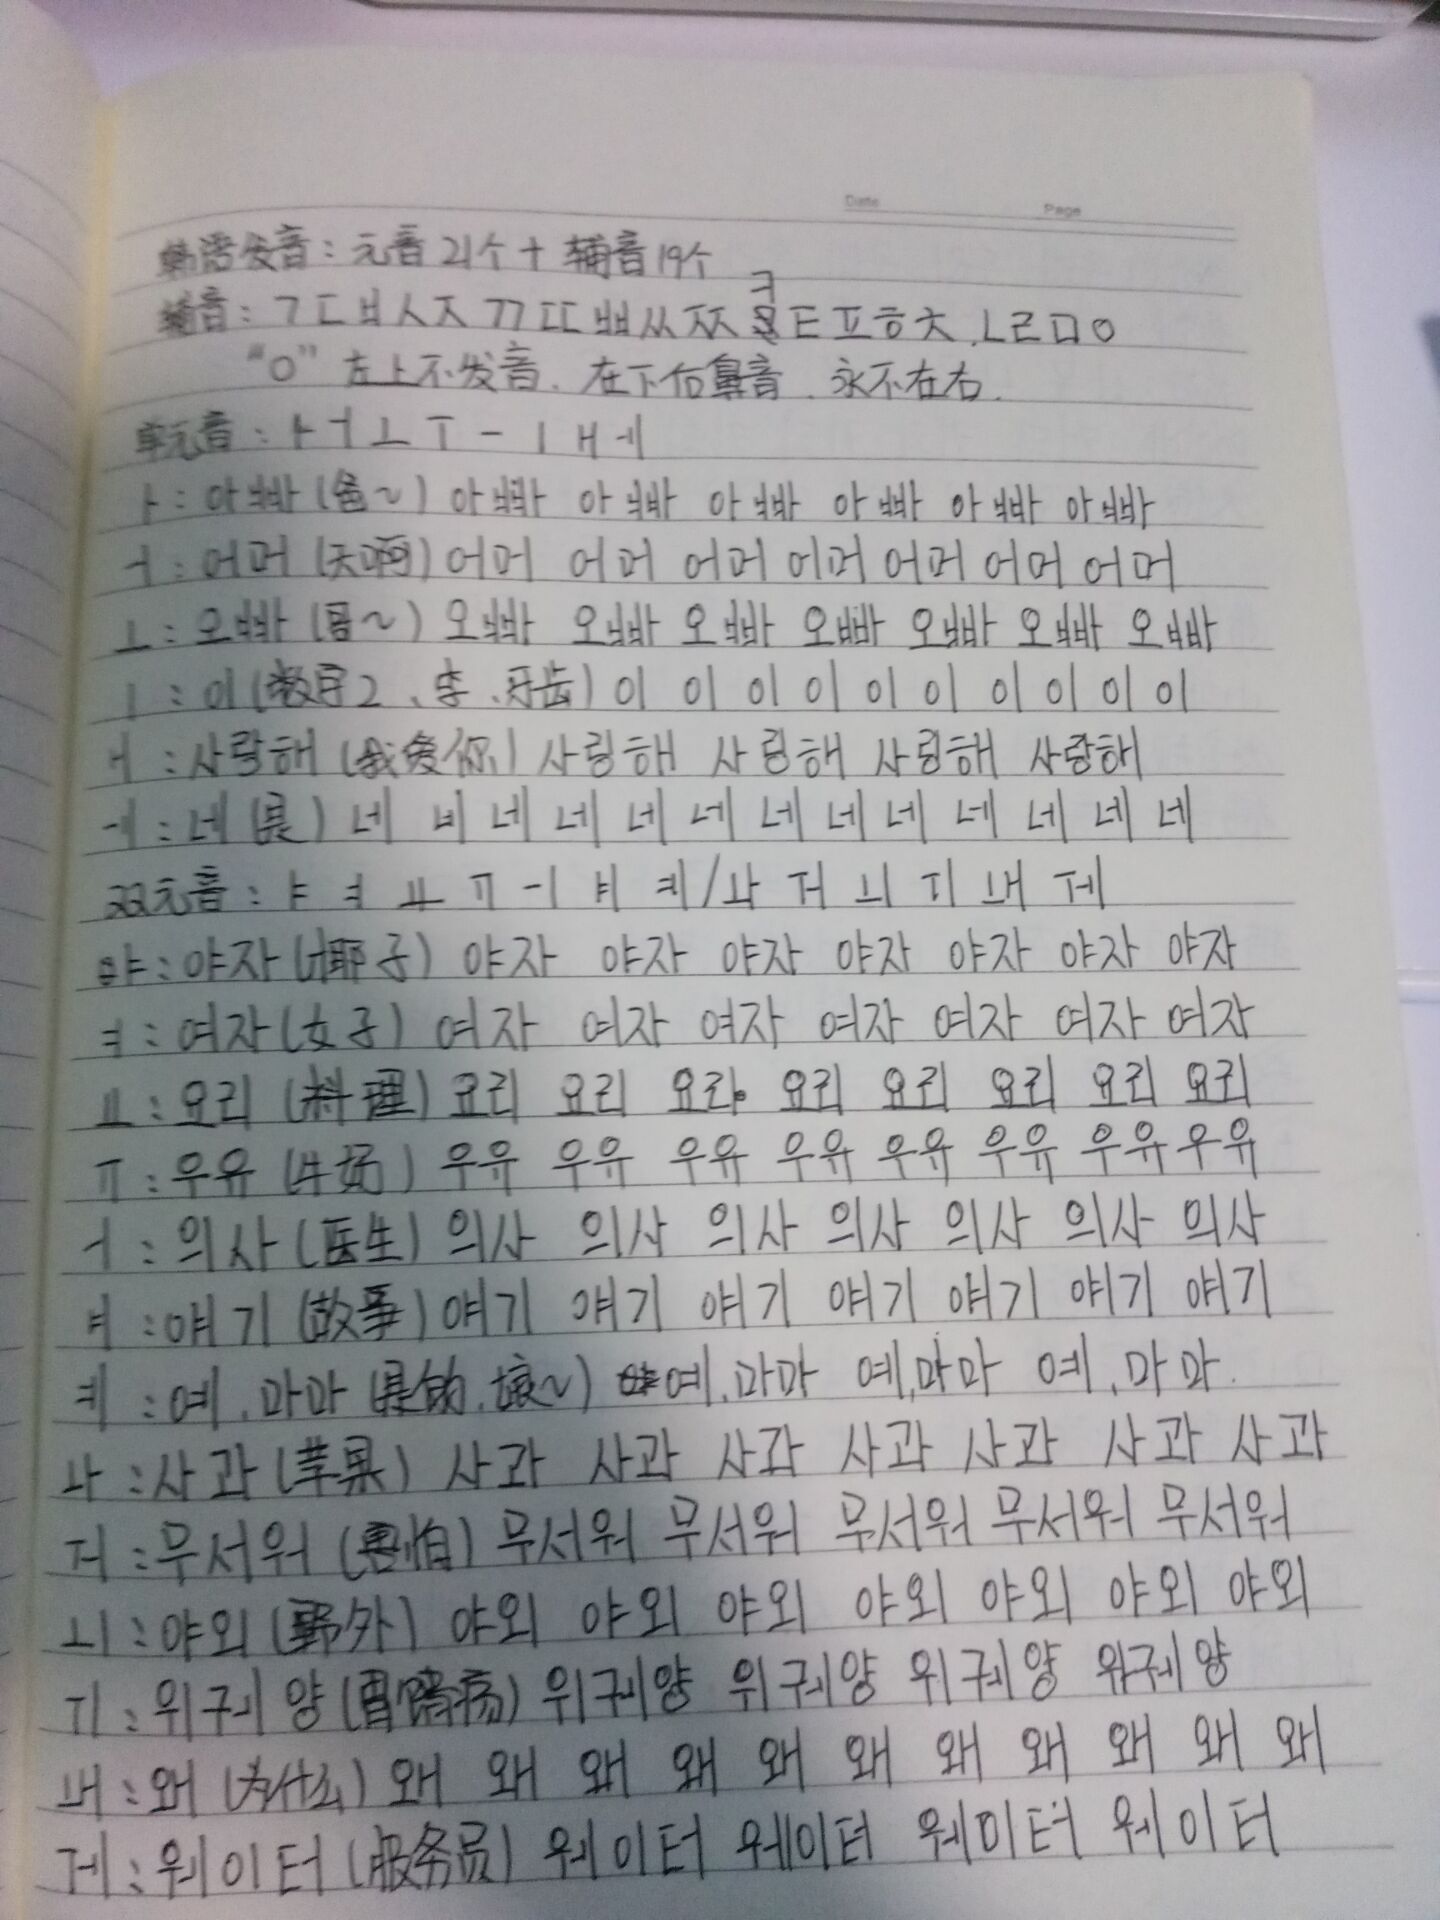 Date Page
韩语发音：元音21个＋辅音19个
辅音：ㄱㄷㅂㅅㅈ ㄲㄸㅃㅆㅉ ㅋㅌㅍㅎㅊ.ㄴㄹㅁㅇ
"ㅇ"左上不发音.在下后鼻音.永不在右.
单元音：ㅏㅓㅗㅜㅡㅣㅐㅔ
ㅏ：아빠(爸~) 아빠 아빠 아빠 아빠 아빠 아빠
ㅓ：어머(天啊) 어머 어머 어머 어머 어머 어머 어머
ㅗ：오빠(哥~) 오빠 오빠 오빠 오빠 오빠 오빠 오빠
ㅣ：이(数字2、李、牙齿) 이 이 이 이 이 이 이 이 이 이
ㅐ：사랑해(我爱你) 사랑해 사랑해 사랑해 사랑해
ㅔ：네(是) 네 네 네 네 네 네 네 네 네 네 네 네 네
双元音：ㅑ ㅕ ㅛ ㅠ ㅢ ㅒ ㅖ/ㅘ ㅝ ㅚ ㅟ ㅙ ㅞ
야：야자(椰子) 야자 야자 야자 야자 야자 야자 야자
ㅕ：여자(女子) 여자 여자 여자 여자 여자 여자 여자
ㅛ：요리(料理) 요리 요리 요리 요리 요리 요리 요리 요리
ㅠ：우유(牛奶) 우유 우유 우유 우유 우유 우유 우유 우유
ㅢ：의사(医生) 의사 의사 의사 의사 의사 의사 의사
ㅒ：얘기(故事) 얘기 얘기 얘기 얘기 얘기 얘기 얘기
ㅖ：예.마마(是的.娘~) 예.마마 예.마마 예.마마.
ㅘ：사과(苹果) 사과 사과 사과 사과 사과 사과 사과
ㅝ：무서워(害怕) 무서워 무서워 무서워 무서워 무서워
ㅚ：야외(野外) 야외 야외 야외 야외 야외 야외 야외
ㅟ：위궤양(胃溃疡) 위궤양 위궤양 위궤양 위궤양
ㅙ：왜(为什么) 왜 왜 왜 왜 왜 왜 왜 왜 왜 왜 왜
ㅞ：웨이터(服务员) 웨이터 웨이터 웨이터 웨이터